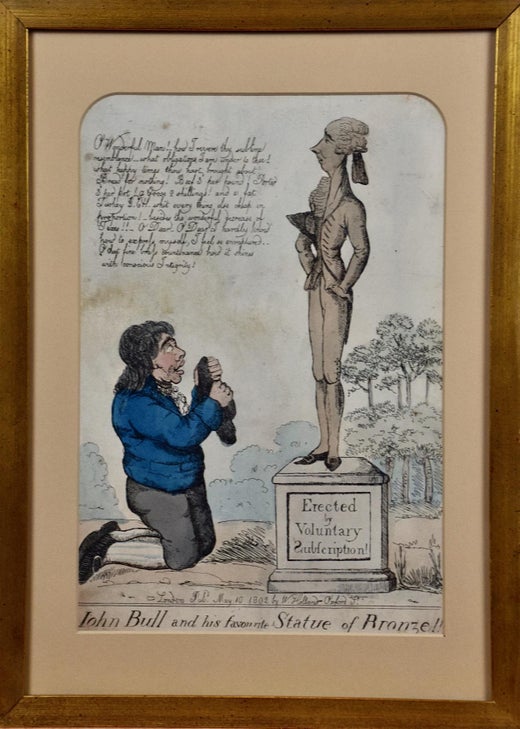 O Wonderful Man! how I revere thy sublime
resemblance what obligations I am under to thee!
what happy times thou hast brought about
for nothing! Beef 5 per pound! Porter
a Goose 2 shillings! and a fat
Turkey what every thing else cheap in
proportion! besides the wonderful increase of
Taxes!!— O Dear O Dear I hardly know
how to express myself, I feel so enraptured..
O that fine countenance how it shines
with conscious Integrity!
Erected
by
Voluntary
Subscription!
London Pub. May 10 1802 by W Holland Oxford St
John Bull and his favourite Statue of Bronze!!